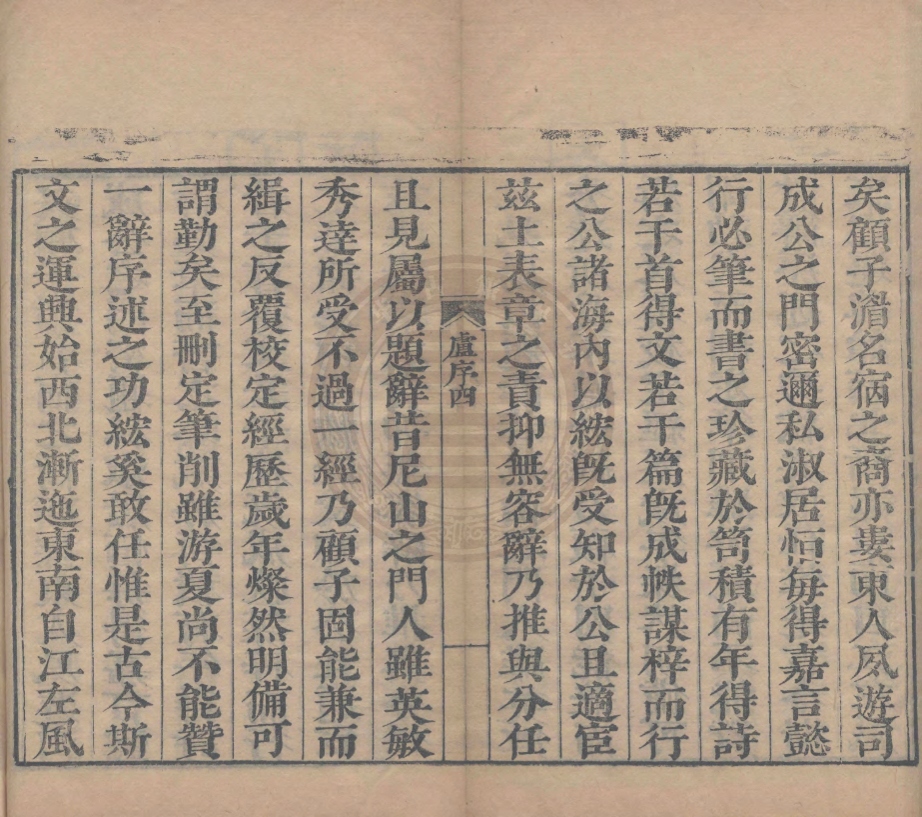 矣顧子滑名宿之裔亦婁東人夙遊司
成公之門密邇私淑居恒每得嘉言懿
行必筆而書之珍藏於笥積有年得詩
若干首得文若干篇旣成帙謀梓而行
之公諸海內以綋旣受知於公且適宦
兹土表章之責抑無容辭乃推與分任
盧序四
且見屬以題辭昔尼山之門人雖英敏
秀逹所受不過一經乃顧子固能兼而
緝之反覆校定經歷歲年燦然明備可
謂勤矣至刪定筆削雖游夏尚不能贊
一辭序述之功綋奚敢任惟是古今斯
文之運興始西北漸迤東南自江左風